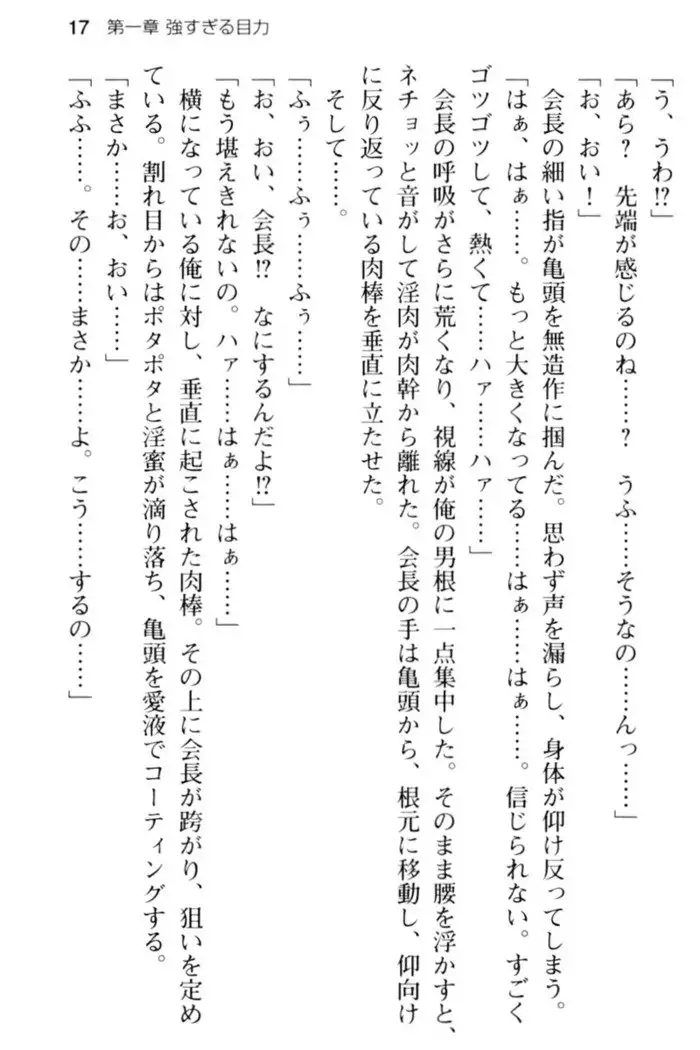 17 第一章 強すぎる目力
「う、うわ!?」
「あら? 先端が感じるのね……? うふ……そうなの……んっ……」
「お、おい!」
会長の細い指が亀頭を無造作に掴んだ。思わず声を漏らし、身体が仰け反ってしまう。
「はぁ、はぁ……。もっと大きくなってる……はぁ……はぁ……。信じられない。すごく
ゴツゴツして、熱くて……ハァ……ハァ……」
会長の呼吸がさらに荒くなり、視線が俺の男根に一点集中した。そのまま腰を浮かすと、
ネチョッと音がして淫肉が肉幹から離れた。会長の手は亀頭から、根元に移動し、仰向け
に反り返っている肉棒を垂直に立たせた。
そして……。
「ふぅ……ふぅ……ふぅ……」
「お、おい、会長!? なにするんだよ!?」
「もう堪えきれないの。ハァ……はぁ……はぁ……」
横になっている俺に対し、垂直に起こされた肉棒。その上に会長が跨がり、狙いを定め
ている。割れ目からはポタポタと淫蜜が滴り落ち、亀頭を愛液でコーティングする。
「まさか……お、おい……」
「ふふ……。その……まさか……よ。こう……するの……」